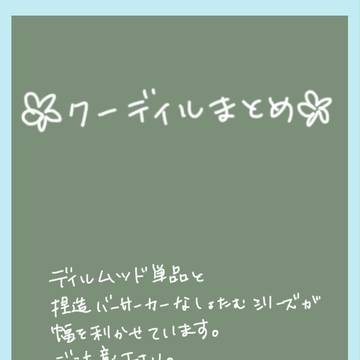 クーディルまとめ
ディルムッド単品と
捏造バーサーカーなしょたむシリーズが
幅を利かせています。
ご注意下さい。